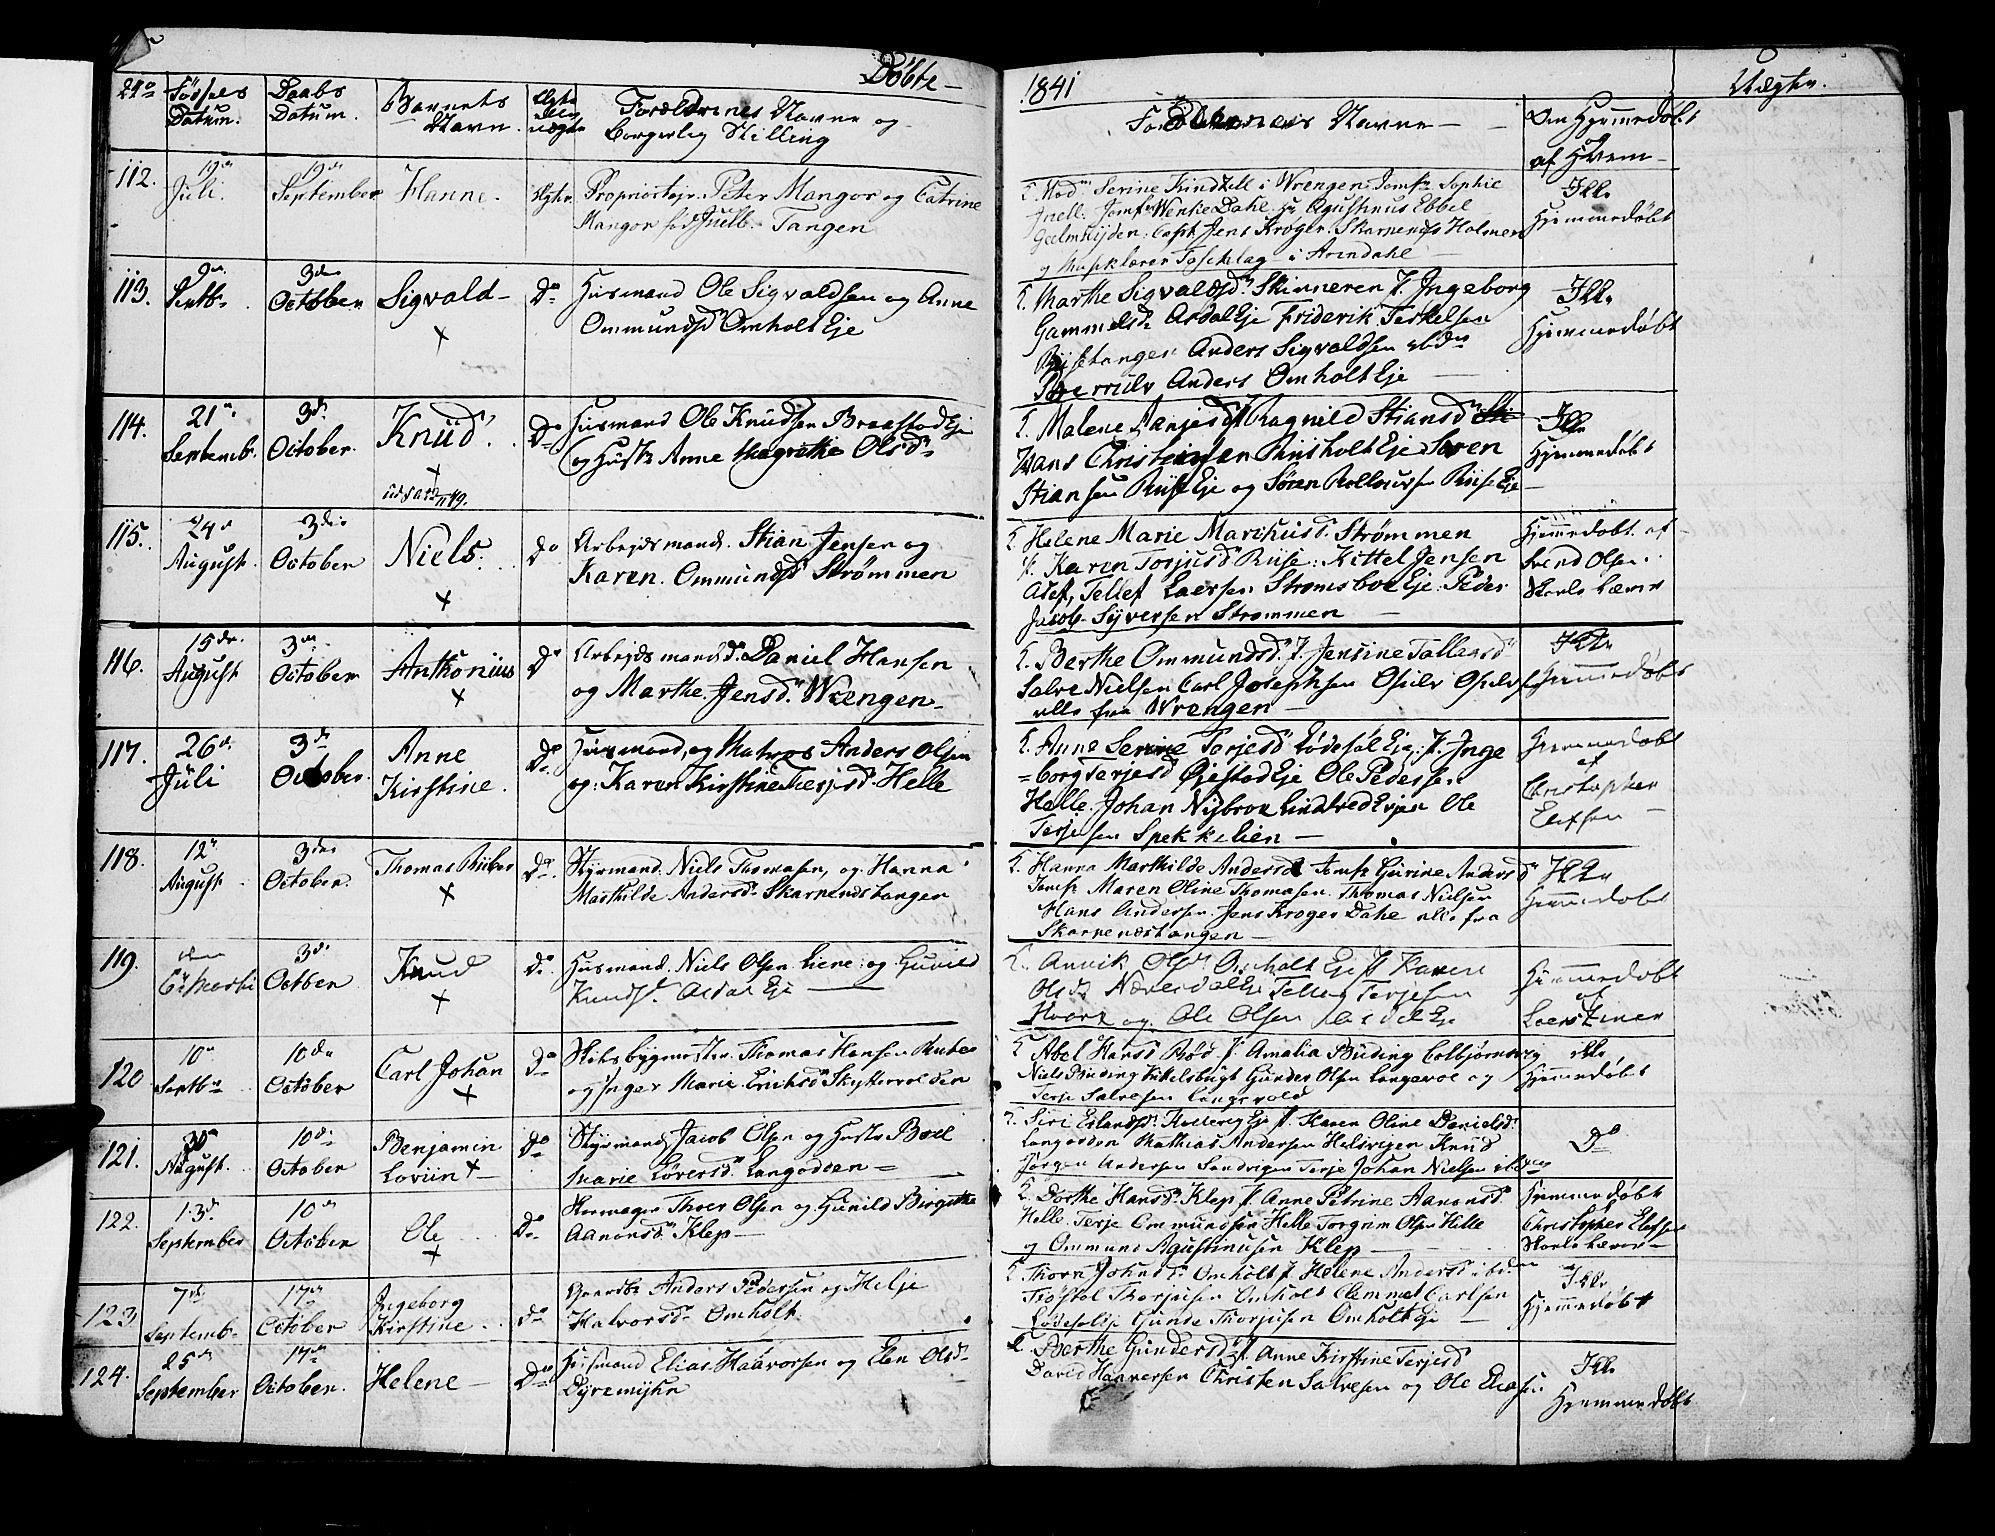 Döbte 1841
No Födsels Datum. Daabs Datum. Barnets Navn. Ægte eller uægte Forældrenes Navne og
borgerlig Stilling
Faddernes Navne
Om Hjemmedøbt
og
af Hvem
Uægte.
112. 19de Juli. 19de September Hanne. Ægte. Proprietair Peter Mangor og Catrine
Mangor fød Juell. Tangen
Serine Kindtell i Wrengen Jomfr. Sophie
Juell. Jomfr Wenke Dahl. Hr Agustinus Ebbel
Capt. Jens Krøger Skarnenæs Holmen
og i Arendahl
Ikke
Hjemmedöbt
113. Septbr 3die October Sigvald Do Husmand Ole Sigvaldsen og Anne
Ommundsd Omholt Eje
Marthe Sigvaldsd. Skinneren J. Ingeborg
Gammelsd. Asdal Eje Friderik Terkelsen
Anders Sigvaldsen
Anders Omholt Eje
Ikke
Hjemmedöbt
114. 21 Septemb. 3die October Knüd. Do Husmand Ole Knudsen Braastad Eje
og Hustr Anne Magrethe Olsdr
Malene J. Ragnild Stiansd.
Hans Christensen Riisholt Eje Søren
Stiansen Riise Eje og Søren Rollaursen Riise Eje
Ikke
Hjemmedöbt
115. 24 August. 3die October Niels. Do Arbejdsmand. Stian Jensen og
Karen. Ommundsd Strømmen
Helene Marie Markusd. Strømmen
J. Karen Torjusd Riise. Kittel Jensen
Tellef Laersen Strømsboe Eje. Peder
Jacob Syversen Strømmen
Hjemmedöbt af
Svend Olsen
Skole Lærer
116. 15de August 3die October Anthonius Do Arbejdsmand. Daniel Hansen
og Marthe. Jensd. Wrengen
Berthe Ommundsd. J. Jensine Tallaksd
Salve Nielsen Carl Josephsen
alle fra Wrengen
Ikke
Hjemmedöbt
117. 26de Jüli 3die October. Anne
Kirstine. Do Husmand, og Matros Anders Olsen
og Karen Kirstine Terjesd. Helle
Anne Serine Terjesd Lødesøl Eje, J. Inge
=borg Terjesd Øiestad Eje Ole Pedersen
Helle. Johan Nijbroe Ole
Terjesen Spekkelien
Hjemmedöbt
af
Christopher
Elefsen
118. 12 August 3die October. Thomas Riiber Do. Styrmand. Niels Thomasen, og Hanna
Mathilde Andersd Skarnenæstangen
Hanna Mathilde Andersd Jomfr Gurine Andersd
Jomfr Maren Oline Thomasen. Thomas Nielsen
Hans Andersen. Jens Kroger Dahe alle fra
Skarpenæstangen
Ikke
Hjemmedöbt
119. 3die October Knud Do Husmand. Niels Olsen Liene og Gunild
Knudsd. Asdal Eje
Annik Olsd Omholt Eje J. Karen
Olsd Næresdal Eje Tellef Terjesen
og Ole Olsen Asdal Eje
Hjemmedöbt
af
120 10 Septbr 10de October Carl Johan Do Skibsbygmester. Thomas Hansen
og Inger Marie. Erichsd.
Abel Hansd J. Amalia Büding Colbjørnsvig
Niels Büding Kikelsbugt Gunder Olsen Langevol og
Terje Salvesen Langevold
ikke
Hjemmedöbt
121. August. 10de October Benjamin
Loviin Do Styrmand Jacob Olsen og Hustr Boel
Marie Lørersd Langodden
Siri J. Karen Oline Danielsd.
Langodden Mathias Andersen Helsvigen Knud
Jørgen Andersen Sandvigen Terje Johan Nielsen
Do
122. 13de September 10de October Ole Do. Thore Olsen og Gunild Birgithe
Aanonsd. Klep
Dorthe Hansd. Klep J. Anne Petrine Aanonsd.
Helle. Terje Ommundsen Helle Torgrim Olsen Helle
og Ommund Agustinusen Klep
Hjemmedöbt
Christopher Elefsen
Skole Lærer
123 7de Septemb. 17de October Ingeborg
Kirstine Do Gaardbr Anders Pedersen og Helje
Halvorsdr Omholt.
Thorn Johnsd Omholt J. Helene Andersd
Trøstol Thorjusen Omholt Clemmet Carlsen
Gunde Thorjusen Omholt Eje
Ikke
Hjemmedöbt
124. 25de September 17de October. Helene Do Husmand Elias Haavorsen og Elen Olsd.
Dyremyhr
Berthe Gundersd J. Anne Kirstine Terjesd
David Haavorsen Christen Salvesen og Ole Eliasen
Ikke
Hjemmedöbt